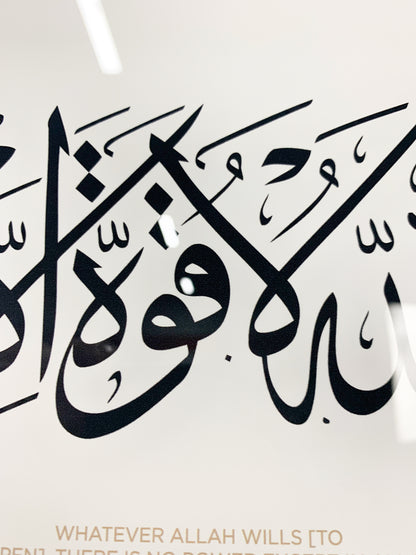 اللَّهُ لَا قُوَّةَ إِلَّا
WHATEVER ALLAH WILLS [TO
PEN], THERE IS NO POWER EXCEPT